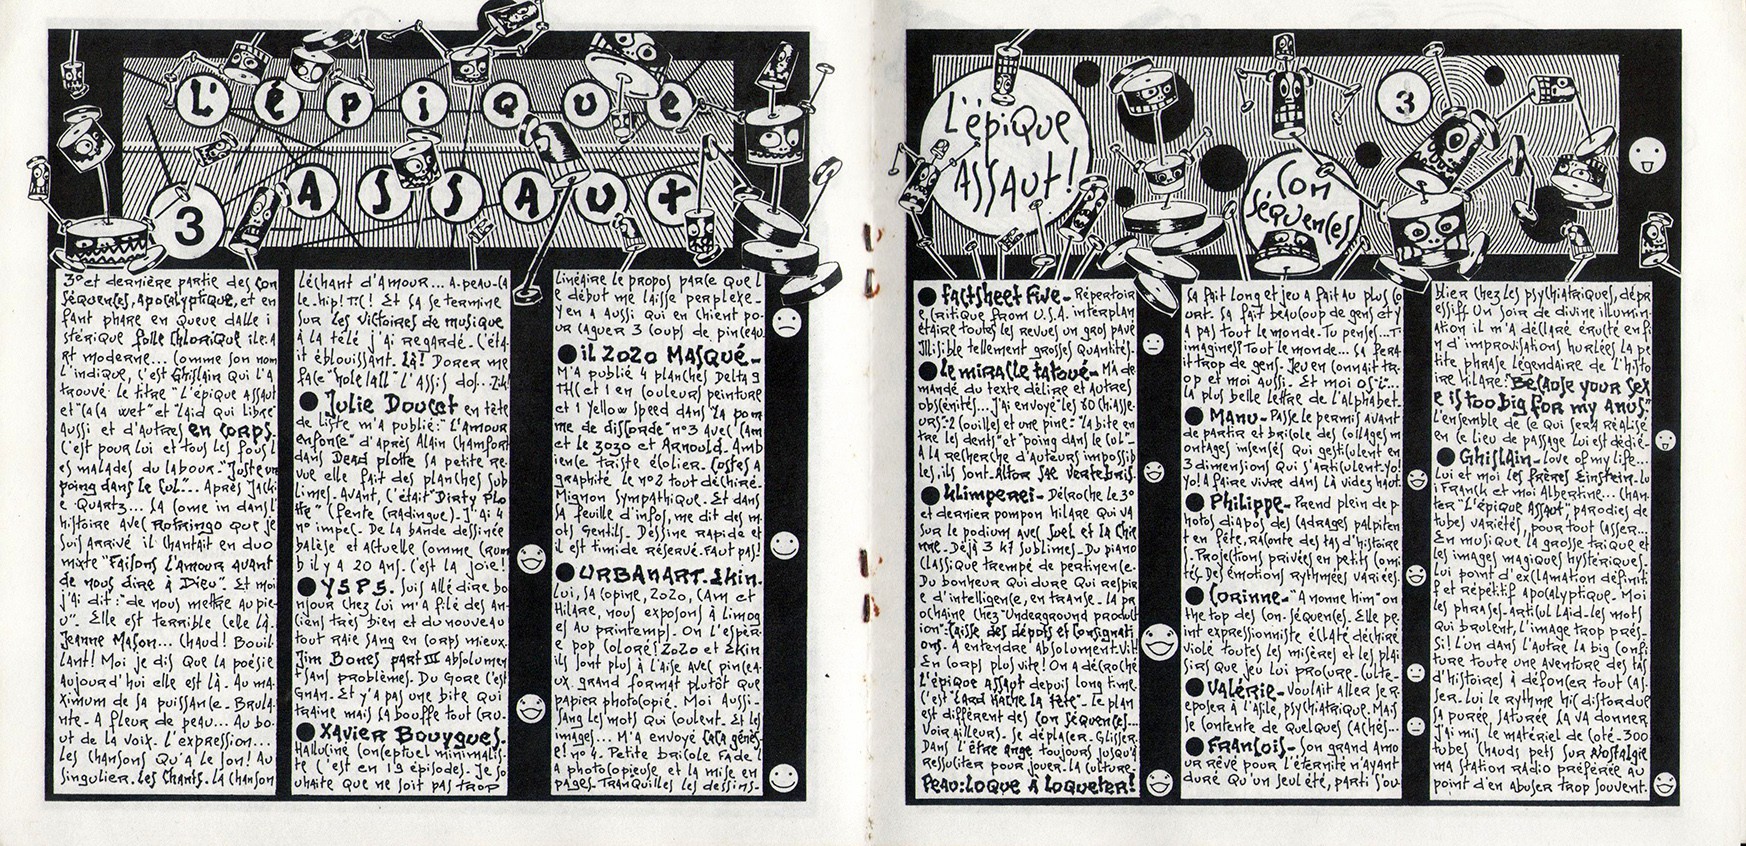 L'épique
3 ASSAUT
3° et dernière partie des Con
Séquences, Apocalyptique, et en
fant phare en queue dalle i
stérique folle chlorique ile.A
rt moderne... Comme son nom
l'indique, c'est Ghislain qui l'a
trouvé. le titre "L'épique Assaut
et "CACA wet" et "Laid qui libre"
Aussi et d'autres en corps.
c'est pour lui et tous les fous l
es malades du labour. "Juste un
poing dans le cul"... Après Jacki
e Quartz... Sa come in dans l'
histoire avec Rotringo que je
suis arrivé il chantait en duo
mixte "Faisons l'amour avant
de nous dire à Dieu". Et moi
j'ai dit: "de nous mettre au pie-
u". Elle est terrible celle là.
Jeanne Mason... Chaud! Bouil
lant! Moi je dis que la poésie
Aujourd'hui elle est là. Au ma-
ximum de sa puissance. Brula
nte. A fleur de peau... Au bo-
ut de la voix. L'expression...
les chansons qu'a le son! Au
singulier. les chants. la chanson
léchant d'Amour... A-peau-ca
le.hip! TIC! Et sa se termine
sur les victoires de musique
à la télé j'ai regardé. C'éta-
it éblouissant. là! Dorer me
face "hole lall" L'assis dof...
Julie Doucet en tête
de liste m'a publié: "L'amour
enfonse" d'après Alain Chamfort
dans Dead plotte sa petite re-
vue elle fait des planches sub
limes. Avant, c'était "Dirty Plo
tte" (fente cradingue). J'ai 4
n° impec. De la bande dessinée
balèse et actuelle comme Crum
b il y a 20 ans. C'est la joie!
Y5P5. Suis allé dire bo
njour chez lui m'a filé des an-
ciens très bien et du nouveau
tout raie sang en corps mieux.
Jim Bones part III absolumen
t sans problèmes. Du gore c'est
gnan. Et y'a pas une bite qui
traine mais sa bouffe tout cru.
Xavier Bouygues.
Halluciné conceptuel minimalis-
te c'est en 19 épisodes. Je so
uhaite que ne soit pas trop
linéaire le propos parce que l
e début me laisse perplexe.
Y en a aussi qui en chient po-
ur caguer 3 coups de pinceau.
il 2020 MASQUÉ.
M'a publié 4 planches Delta 9
THC et 1 en couleurs peinture
et 1 yellow speed dans "la pom
me de discorde" n°3 avec Cam
et le 3030 et Arnould. Amb
ience triste écolier. Costes a
graphité le n°2 tout déchiré.
Mignon sympathique. Et dans
sa feuille d'infos, me dit des m-
ots gentils. Dessine rapide et
il est timide réservé. Faut pas!
URBANART. Ekin.
Lui, sa copine, 2020, Cam et
Hilare, nous exposons à Limog
es au printemps. On l'espèr-
e pop coloré! 2020 et Ekin
ils sont plus à l'aise avec pincea-
ux grand format plutôt que
papier photocopié. Moi aussi.
Sang les mots qui coulent. Et les
images... M'a envoyé CACA génès
e! n°4. Petite bricole fade l
a photocopieuse et la mise en
pages. Tranquilles les dessins.
L'épique
Assaut!
Con
séquences
3
Factsheet Five. Répertoir
e, critique from U.S.A. interplan
étaire toutes les revues un gros pavé
Illisible tellement grosses quantités.
Le miracle tatoué. M'a de-
mandé du texte délire et autres
obscénités... J'ai envoyé "les 80 chiasse-
urs: 2 couilles et une pine: "la bite en
tre les dents" et "poing dans le cul"...
À la recherche d'auteurs impossib
les, ils sont. Altor sae vertebris.
Klimperei. Décroche le 3°
et dernier pompon hilare qui va
sur le podium avec Suel et la Chie
nne. Déjà 3 k7 sublimes. Du piano
classique trempé de pertinence.
Du bonheur qui dure qui respir
e d'intelligence, en transe. La pr
ochaine chez "Underground product
ion": Caisse des dépots et consignati
ons. A entendre absolument.Vit!
En corps plus vite! On a décroché
L'épique Assaut depuis long time.
C'est "Lard hache la tête". Le plan
est différent des Con Séquences...
Voir ailleurs. Se déplacer. Glisser.
Dans l'être ange toujours jusqu'à
ressuciter pour jouer. La culture.
Peau: loque à loqueter!
sa fait long et jeu a fait au plus co
ort. Sa fait beaucoup de gens et y
a pas tout le monde. Tu penses... T'i
magines? Tout le monde... Sa fera
it trop de gens. Jeu en connait tr
op et moi aussi. Et moi os-c...
la plus belle lettre de l'alphabet.
Manu. Passe le permis avant
de partir et bricole des collages m
ontages insensés qui gesticulent en
3 dimensions qui s'articulent. Yo!
Yo! A faire vivre dans là videz haut.
Philippe. Prend plein de p
hotos diapos des cadrages palpiten
t en fête, raconte des tas d'histoire
s. Projections privées en petits comi
tés. Des émotions rythmées variées.
Corinne. "A nonne him" on
the top des Con. séquences. Elle pe-
int expressionniste éclaté déchiré
violé toutes les misères et les plai
sirs que jeu lui procure. Culte.
Valérie. Voulait aller se r-
eposer à l'asile, psychiatrique. Mais
se contente de quelques cachés...
François. Son grand amo
ur rêvé pour l'éternité n'ayant
duré qu'un seul été, parti s'ou-
blier chez les psychiatriques, dépr
essif! Un soir de divine illumin-
ation il m'a déclaré éructé en fi
n d'improvisations hurlées la pe
tite phrase légendaire de l'histo
ire hilare: "Because your sex
e is too big for my anus."
L'ensemble de ce qui sera réalisé
en ce lieu de passage lui est dédié.
Ghislain. Love of my life...
Lui et moi les frères Einstein. lu
i Franck et moi Albertine... Chan-
ter "L'épique Assaut", parodies de
tubes variétés, pour tout casser...
En musique la grosse trique et
les images magiques hystériques.
Lui point d'exclamation définiti
f et répétitif apocalyptique. Moi
les phrases. articul laid-les mots
qui brulent, l'image trop prés-
si! L'un dans l'autre la big confi
ture toute une aventure des tas
d'histoires à défoncer tout cas
ser. Lui le rythme hic distordue
sa purée, saturée sa va donner
j'ai mis le matériel de coté. 300
tubes chauds pets sur Nostalgie
ma station radio préférée au
point d'en abuser trop souvent.